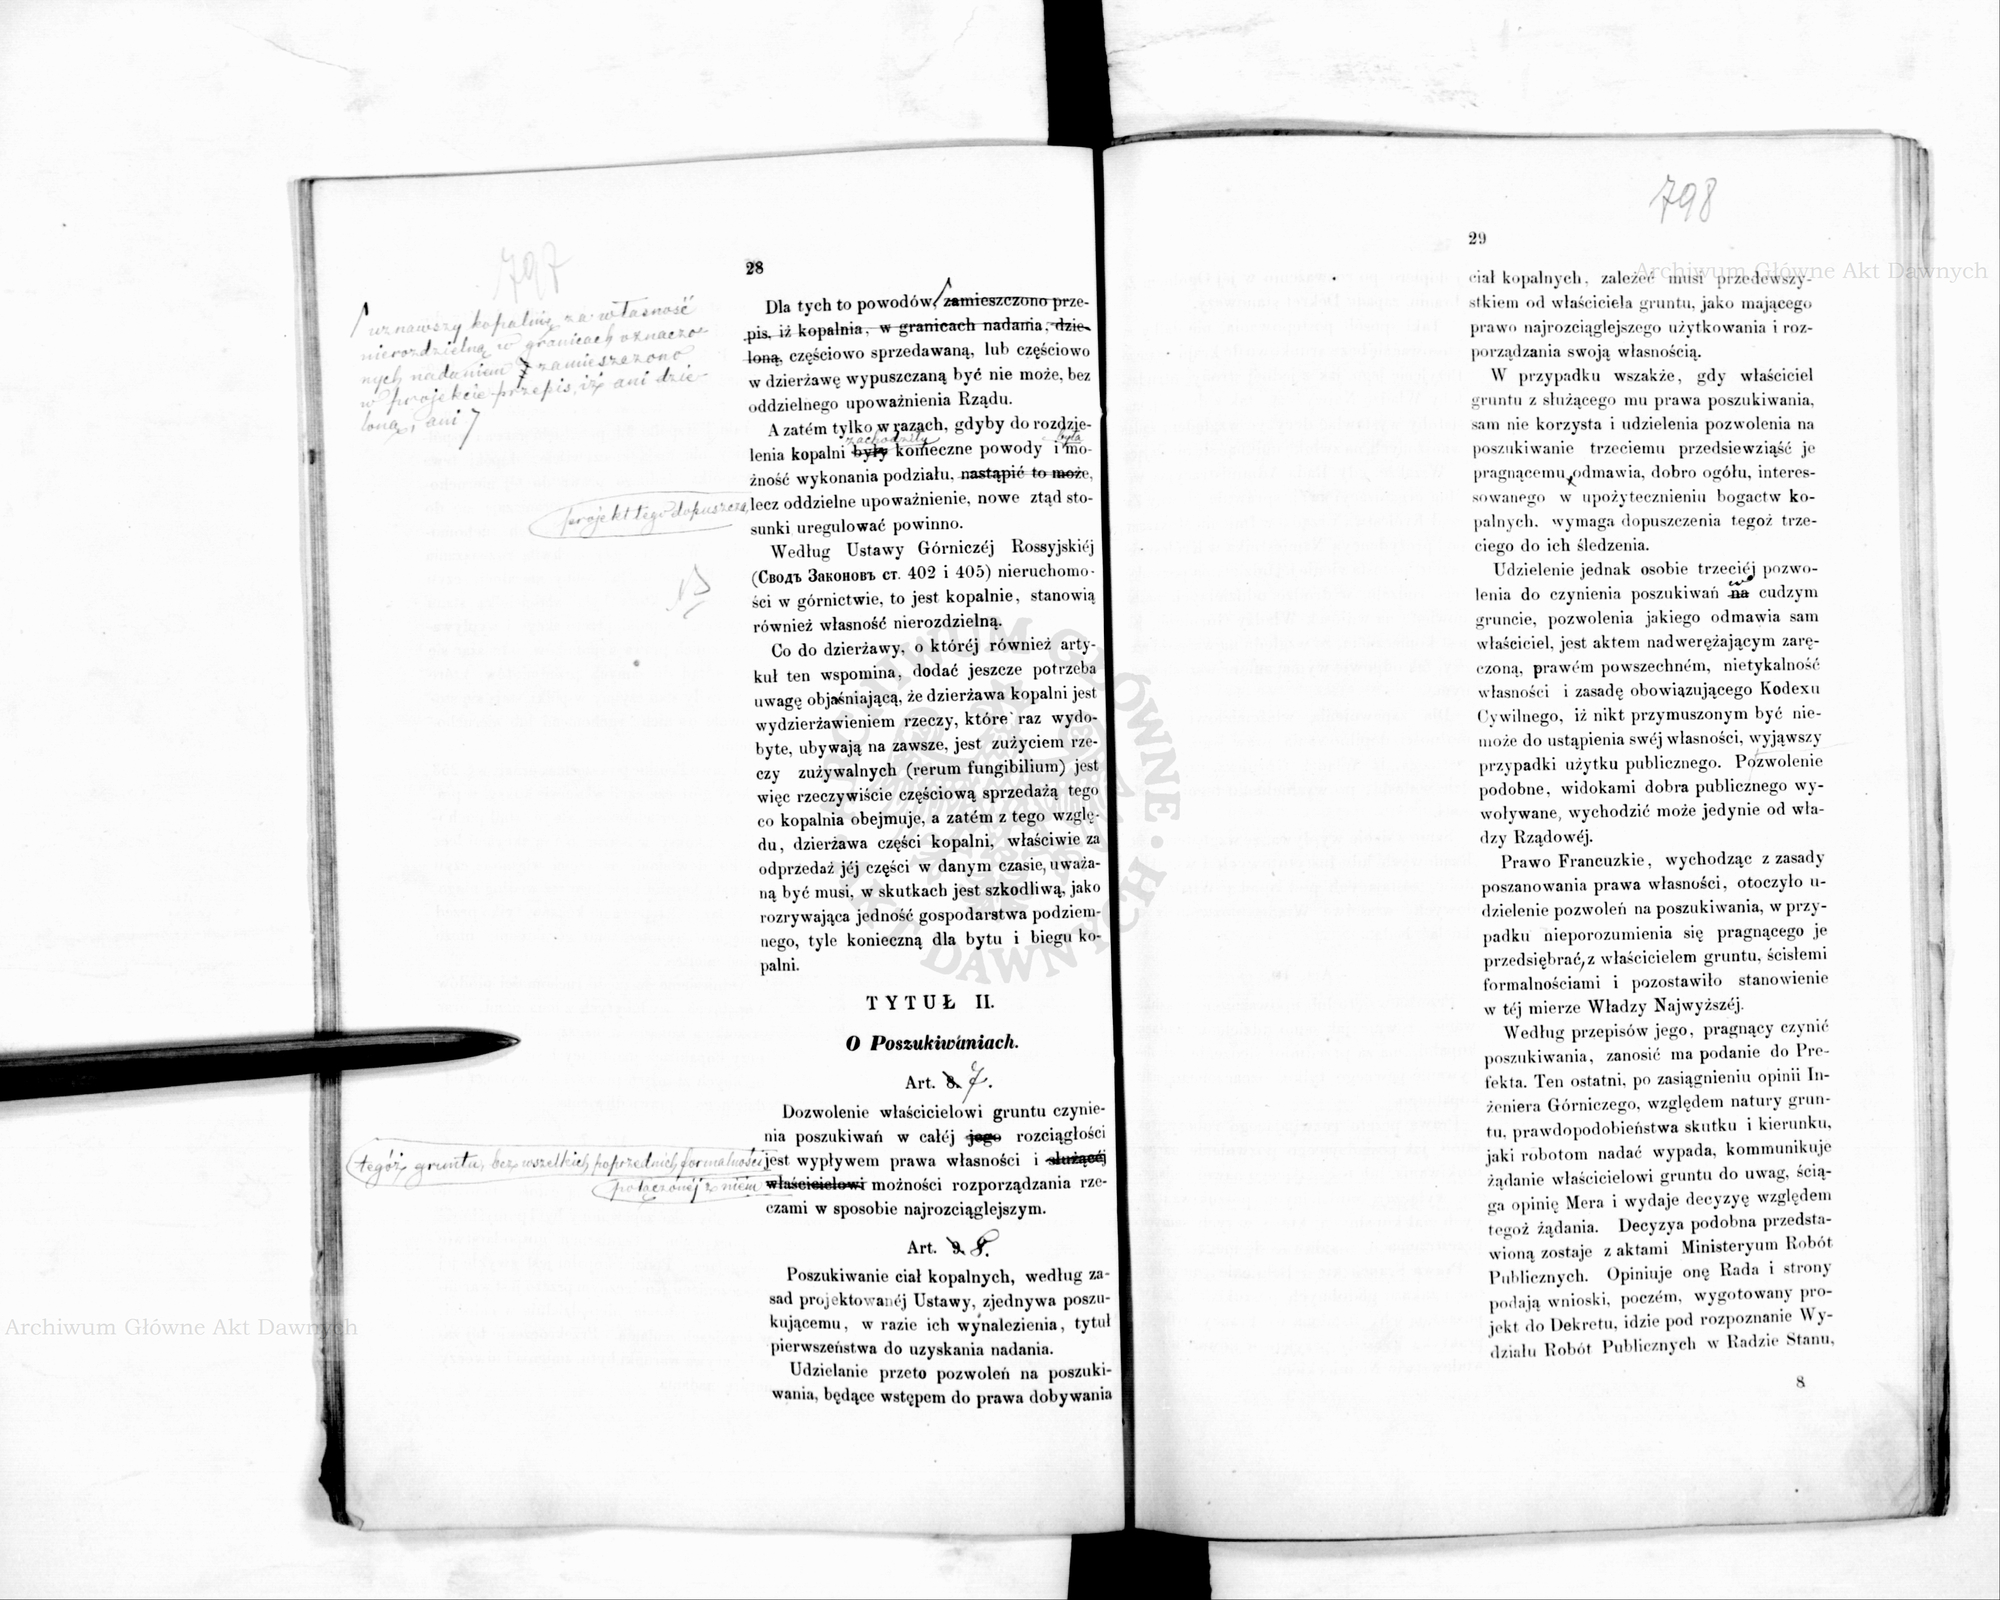 797
28
uznawszy kopalnię za własność
nierozdzielną w granicach oznaczo-
nych nadaniem zamieszczono
w projekcie przepis, iż ani dzie-
loną, ani
Dla tych to powodów, zamieszczono prze-
pis, iż kopalnia, w granicach nadania, dzie-
loną, częściowo sprzedawaną, lub częściowo
w dzierżawę wypuszczaną być nie może, bez
oddzielnego upoważnienia Rządu.
A zatém tylko w razach, gdyby do rozdzie-
zachodziły była
lenia kopalni były konieczne powody i mo-
żność wykonania podziału, nastąpić to może,
projekt tego dopuszcza,
lecz oddzielne upoważnienie, nowe ztąd sto-
sunki uregulować powinno.
Według Ustawy Górniczéj Rossyjskiéj
(Сводъ Законовъ ст. 402 i 405) nieruchomo-
ści w górnictwie, to jest kopalnie, stanowią
również własność nierozdzielną.
Co do dzierżawy, o któréj również arty-
kuł ten wspomina, dodać jeszcze potrzeba
uwagę objaśniającą, że dzierżawa kopalni jest
wydzierżawieniem rzeczy, które raz wydo-
byte, ubywają na zawsze, jest zużyciem rze-
czy zużywalnych (rerum fungibilium) jest
więc rzeczywiście częściową sprzedażą tego
co kopalnia obejmuje, a zatém z tego wzglę-
du, dzierżawa części kopalni, właściwie za
odprzedaż jéj części w danym czasie, uważa-
ną być musi, w skutkach jest szkodliwą, jako
rozrywająca jedność gospodarstwa podziem-
nego, tyle konieczną dla bytu i biegu ko-
palni.
TYTUŁ II.
O Poszukiwaniach.
Art. 8. 7.
Dozwolenie właścicielowi gruntu czynie-
nia poszukiwań w całéj jego rozciągłości
tegóż gruntu, bez wszelkich poprzednich formalności
jest wypływem prawa własności i służącéj
połączonéj z niem
właścicielowi możności rozporządzania rze-
czami w sposobie najrozciąglejszym.
Art. 9. 8.
Poszukiwanie ciał kopalnych, według za-
sad projektowanéj Ustawy, zjednywa poszu-
kującemu, w razie ich wynalezienia, tytuł
pierwszeństwa do uzyskania nadania.
Udzielanie przeto pozwoleń na poszuki-
wania, będące wstępem do prawa dobywania
798
29
ciał kopalnych, zależeć musi przedewszy-
stkiem od właściciela gruntu, jako mającego
prawo najrozciąglejszego użytkowania i roz-
porządzania swoją własnością.
W przypadku wszakże, gdy właściciel
gruntu z służącego mu prawa poszukiwania,
sam nie korzysta i udzielenia pozwolenia na
poszukiwanie trzeciemu przedsiewziąść je
pragnącemu, odmawia, dobro ogółu, interes-
sowanego w upożytecznieniu bogactw ko-
palnych, wymaga dopuszczenia tegoż trze-
ciego do ich śledzenia.
Udzielenie jednak osobie trzeciéj pozwo-
lenia do czynienia poszukiwań na cudzym
gruncie, pozwolenia jakiego odmawia sam
właściciel, jest aktem nadwerężającym zarę-
czoną, prawém powszechném, nietykalność
własności i zasadę obowiązującego Kodexu
Cywilnego, iż nikt przymuszonym być nie-
może do ustąpienia swéj własności, wyjąwszy
przypadki użytku publicznego. Pozwolenie
podobne, widokami dobra publicznego wy-
woływane, wychodzić może jedynie od wła-
dzy Rządowéj.
Prawo Francuzkie, wychodząc z zasady
poszanowania prawa własności, otoczyło u-
dzielenie pozwoleń na poszukiwania, w przy-
padku nieporozumienia się pragnącego je
przedsiębrać, z właścicielem gruntu, ścisłemi
formalnościami i pozostawiło stanowienie
w téj mierze Władzy Najwyższéj.
Według przepisów jego, pragnący czynić
poszukiwania, zanosić ma podanie do Pre-
fekta. Ten ostatni, po zasiągnieniu opinii In-
żeniera Górniczego, względem natury grun-
tu, prawdopodobieństwa skutku i kierunku,
jaki robotom nadać wypada, kommunikuje
żądanie właścicielowi gruntu do uwag, ścią-
ga opinię Mera i wydaje decyzyę względem
tegoż żądania. Decyzya podobna przedsta-
wioną zostaje z aktami Ministeryum Robót
Publicznych. Opiniuje onę Rada i strony
podają wnioski, poczém, wygotowany pro-
jekt do Dekretu, idzie pod rozpoznanie Wy-
działu Robót Publicznych w Radzie Stanu,
8
Archiwum Główne Akt Dawnych
Archiwum Główne Akt Dawnych